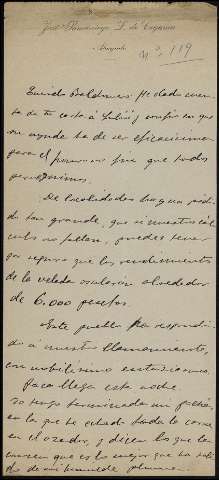 José Domingo L. de
Nº 119
Querido Baldomero: He dado cuen-
ta de tu carta á y confío en que
su ayuda ha de ser eficacísima
para el fin que todos
perseguimos.
De localidades hay un pedi-
do tan grande, que si nuestros cál-
culos no fallan, puedes tener
por seguro que los rendimientos
de la velada oscilarán alrededor
de 6.000 pesetas.
Este pueblo ha respondi-
do á nuestro llamamiento,
con nobilísimo entusiasmo.
Paco llega esta noche.
Yo tengo terminada mi
en la que he echado toda la carne
en el asador, y dicen los que la
conocen que es lo mejor que ha sali-
do de mi pluma.